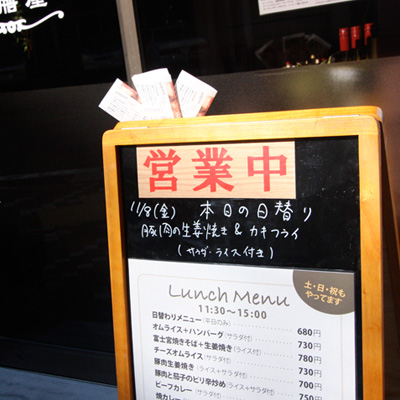 営業中
11/8(金) 本日の日替り
豚肉の生姜焼き & カキフライ
(サラダ・ライス付き)
土・日・祝も
やってます
Lunch Menu
11:30〜15:00
日替わりメニュー(平日のみ) 680円
オムライス+ハンバーグ(サラダ付) 730円
富士宮焼きそば+生姜焼き(ライス付) 780円
チーズオムライス(サラダ付) 750円
豚肉生姜焼き(ライス+サラダ付) 730円
豚肉と茄子のピリ辛炒め(ライス+サラダ付) 700円
ビーフカレー(サラダ付) 750円